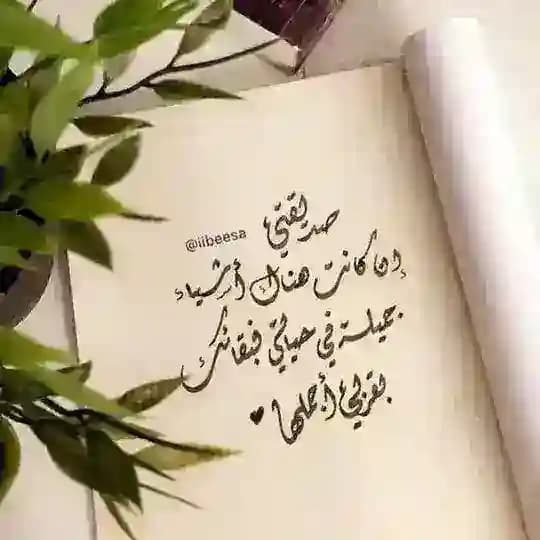 صديقتي
@iibeesa
إن كانت هناك أشياء
جميلة في حياتي فبقائك
بقربي أجملها ♥